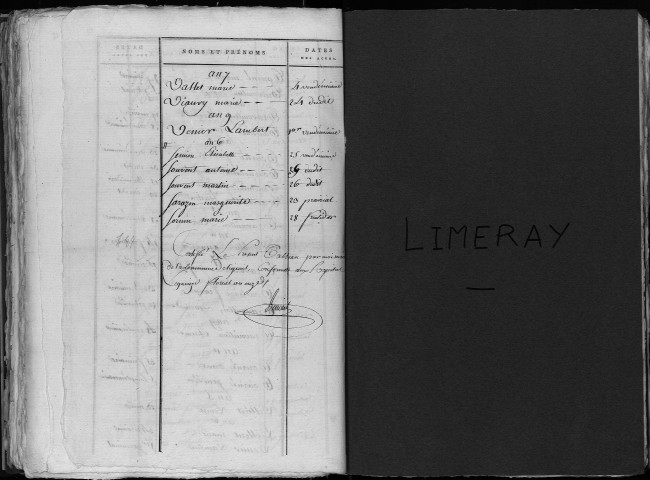 NOMS ET PRÉNOMS DATES DES ACTES.
an 7
Vallet marie 4 vendémiaire
Viauvy marie 24 dudit
an 9
Venier Lambert 1er vendémiaire
an 6
Élisabeth 25 vendémiaire
Souvent antoine dudit
Souvent martin 26 dudit
Sarazin marguerite 23 prairial
marie 28 fructidor
Certifié Le présent Tableau par moi maire
de la commune de conforme aux Registres
floréal an
LIMERAY